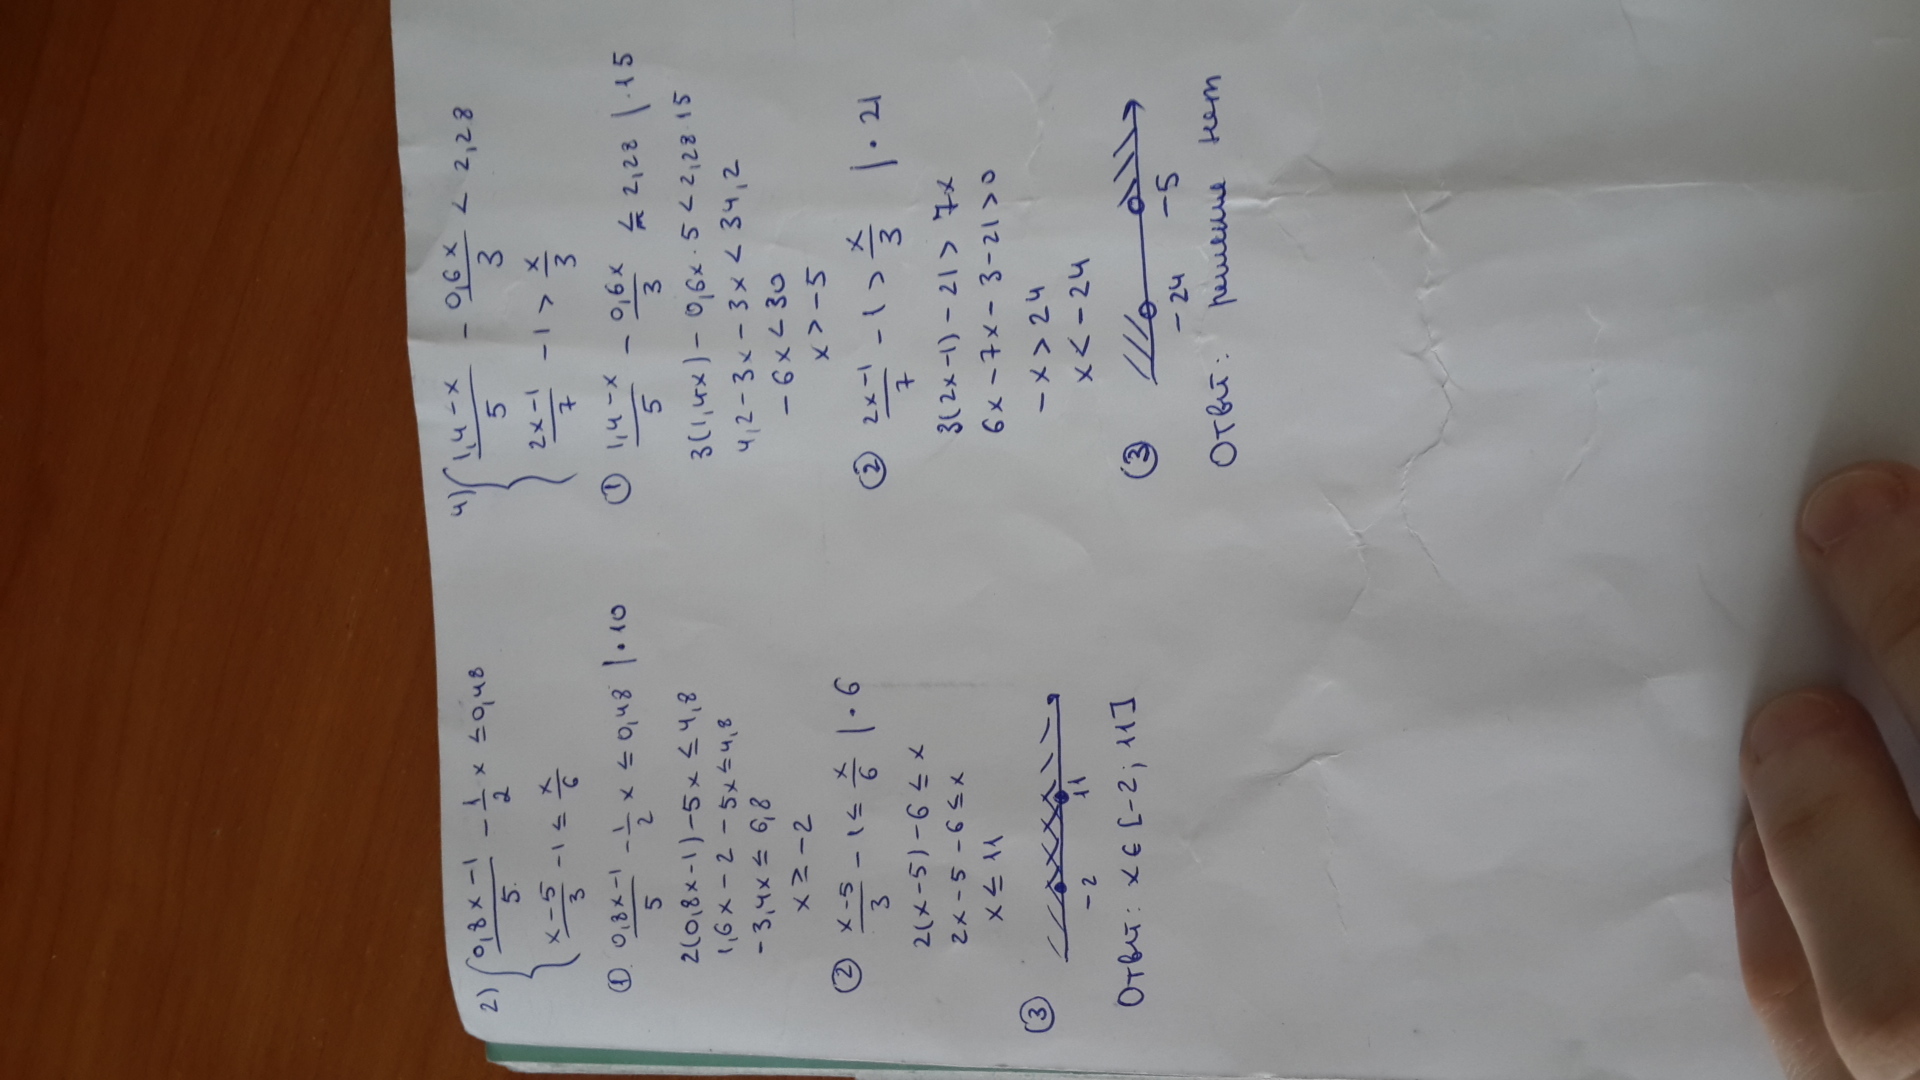 2) { (0,8x-1)/5 - 1/2 x ≤ 0,48
(x-5)/3 - 1 ≤ x/6
① (0,8x-1)/5 - 1/2 x ≤ 0,48 | · 10
2(0,8x-1) - 5x ≤ 4,8
1,6x - 2 - 5x ≤ 4,8
-3,4x ≤ 6,8
x ≥ -2
② (x-5)/3 - 1 ≤ x/6 | · 6
2(x-5) - 6 ≤ x
2x - 5 - 6 ≤ x
x ≤ 11
③
-2 11
Ответ: x ∈ [-2; 11]
4) { (1,4-x)/5 - 0,6x/3 < 2,28
(2x-1)/7 - 1 > x/3
① (1,4-x)/5 - 0,6x/3 ≤ 2,28 | · 15
3(1,4x) - 0,6x · 5 < 2,28 · 15
4,2 - 3x - 3x < 34,2
- 6x < 30
x > -5
② (2x-1)/7 - 1 > x/3 | · 21
3(2x-1) - 21 > 7x
6x - 7x - 3 - 21 > 0
-x > 24
x < -24
③
-24 -5
Ответ: решение нет